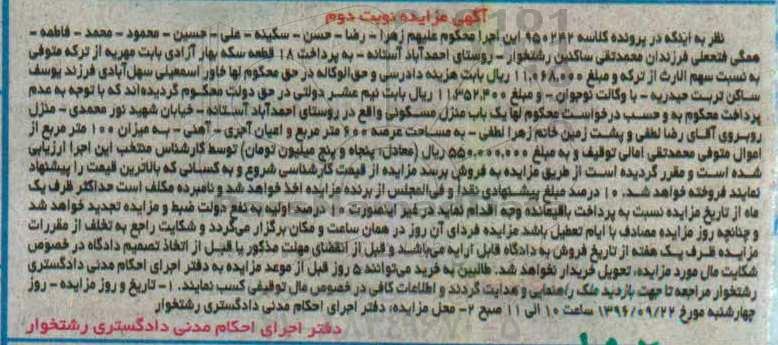 آگهی مزایده نوبت دوم
نظر به اینکه در پرونده کلاسه ۹۵۰۲۴۲ این اجرا محکوم علیهم زهرا - رضا - حسن - سکینه - علی - حسین - محمود - محمد - فاطمه -
همگی فتحعلی فرزندان محمدتقی ساکنین رشتخوار - روستای احمدآباد آستانه - به پرداخت ۱۸ قطعه سکه بهار آزادی بابت مهریه از ترکه متوفی
به نسبت سهم الارث از ترکه و مبلغ ۱۱,۰۶۸,۰۰۰ ریال بابت هزینه دادرسی و حق‌الوکاله در حق محکوم لها خاور اسمعیلی سهل‌آبادی فرزند یوسف
ساکن تربت حیدریه - با وکالت نوجوان - و مبلغ ۱۱,۳۵۲,۴۰۰ ریال بابت نیم عشر دولتی در حق دولت محکوم گردیده‌اند که با توجه به عدم
پرداخت محکوم به و حسب درخواست محکوم لها یک باب منزل مسکونی واقع در روستای احمدآباد آستانه - خیابان شهید نور محمدی - منزل
روبروی آقای رضا لطفی و پشت زمین خانم زهرا لطفی - به مساحت عرصه ۶۰۰ متر مربع و اعیان آجری - آهنی - به میزان ۱۰۰ متر مربع از
اموال متوفی محمدتقی امالی توقیف و به مبلغ ۵۵۰,۰۰۰,۰۰۰ ریال (معادل، پنجاه و پنج میلیون تومان) توسط کارشناس منتخب این اجرا ارزیابی
شده است و مقرر گردیده است از طریق مزایده به فروش برسد مزایده از قیمت کارشناسی شروع و به کسانی که بالاترین قیمت را پیشنهاد
نمایند فروخته خواهد شد. ۱۰ درصد مبلغ پیشنهادی نقدا و فی‌المجلس از برنده مزایده اخذ خواهد شد و نامبرده مکلف است حداکثر ظرف یک
ماه از تاریخ مزایده نسبت به پرداخت باقیمانده وجه اقدام نماید در غیر اینصورت ۱۰ درصد اولیه به نفع دولت ضبط و مزایده تجدید خواهد شد
و چنانچه روز مزایده مصادف با ایام تعطیل باشد مزایده فردای آن روز در همان ساعت و مکان برگزار می‌گردد و شکایت راجع به تخلف از مقررات
مزایده ظرف یک هفته از تاریخ فروش به دادگاه قابل ارایه می‌باشد و قبل از انقضای مهلت مذکور یا قبل از اتخاذ تصمیم دادگاه در خصوص
شکایت مال مورد مزایده، تحویل خریدار نخواهد شد. طالبین به خرید می‌توانند ۵ روز قبل از موعد مزایده به دفتر اجرای احکام مدنی دادگستری
رشتخوار مراجعه تا جهت بازدید ملک راهنمایی و هدایت گردند و اطلاعات کافی در خصوص مال توقیفی کسب نمایند. ۱- تاریخ و روز مزایده - روز
چهارشنبه مورخ ۱۳۹۶/۰۹/۲۲ ساعت ۱۰ الی ۱۱ صبح ۲- محل مزایده، دفتر اجرای احکام مدنی دادگستری رشتخوار
دفتر اجرای احکام مدنی دادگستری رشتخوار